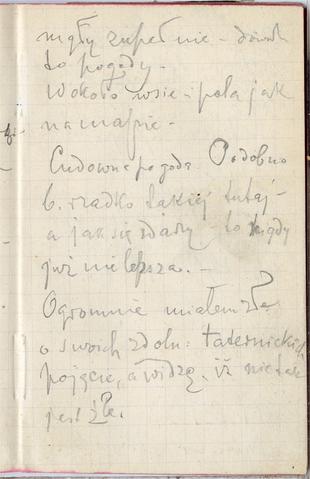 mgły zupełnie – dzień
to pogody –
Wokoło wsie i pola jak
na mapie –
Cudowna pogoda Podobno
b. rzadko takiej tutaj –
a jak się zdarzy – to nigdy
już nie lepsza. –
Ogromnie miałem złe
o swoich zdoln: taternickich
pojęcie, a widzę, iż nie tak
jest źle.